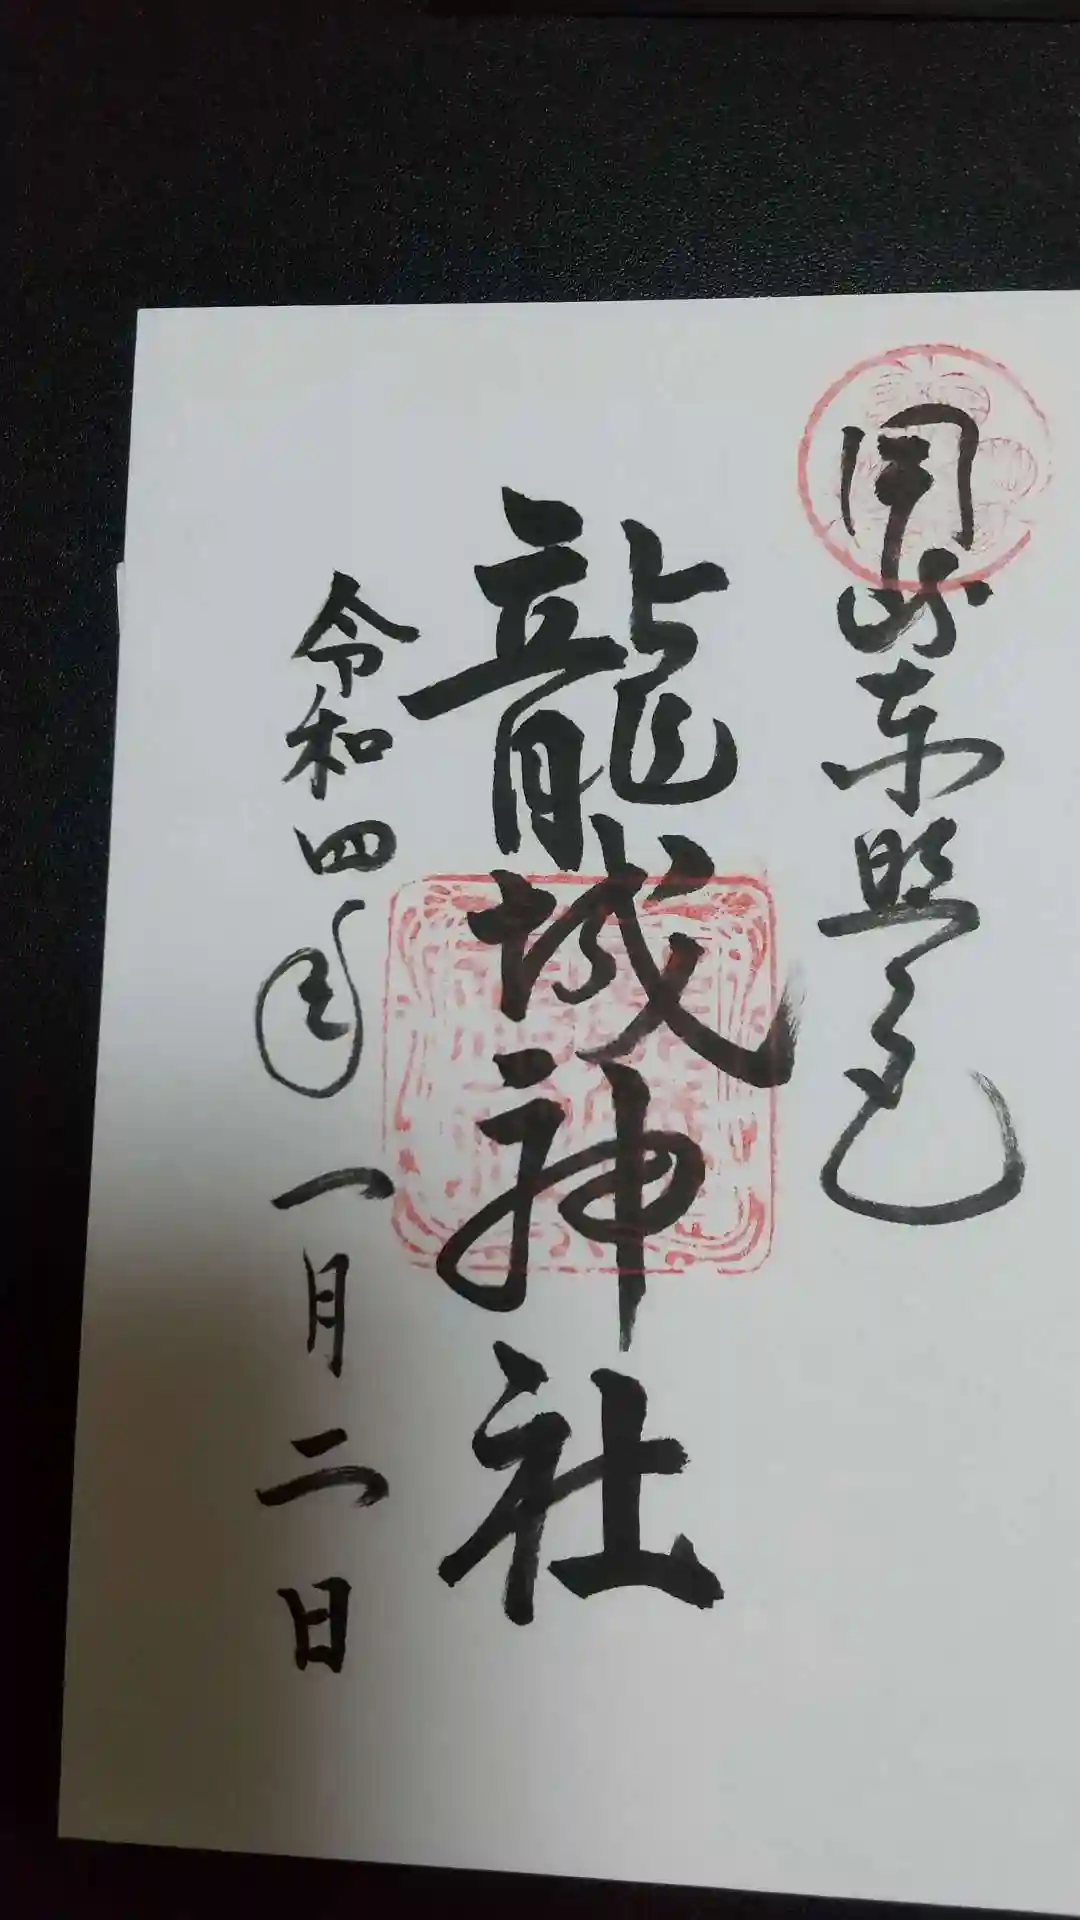 岡崎東照宮
龍城神社
令和四年一月二日